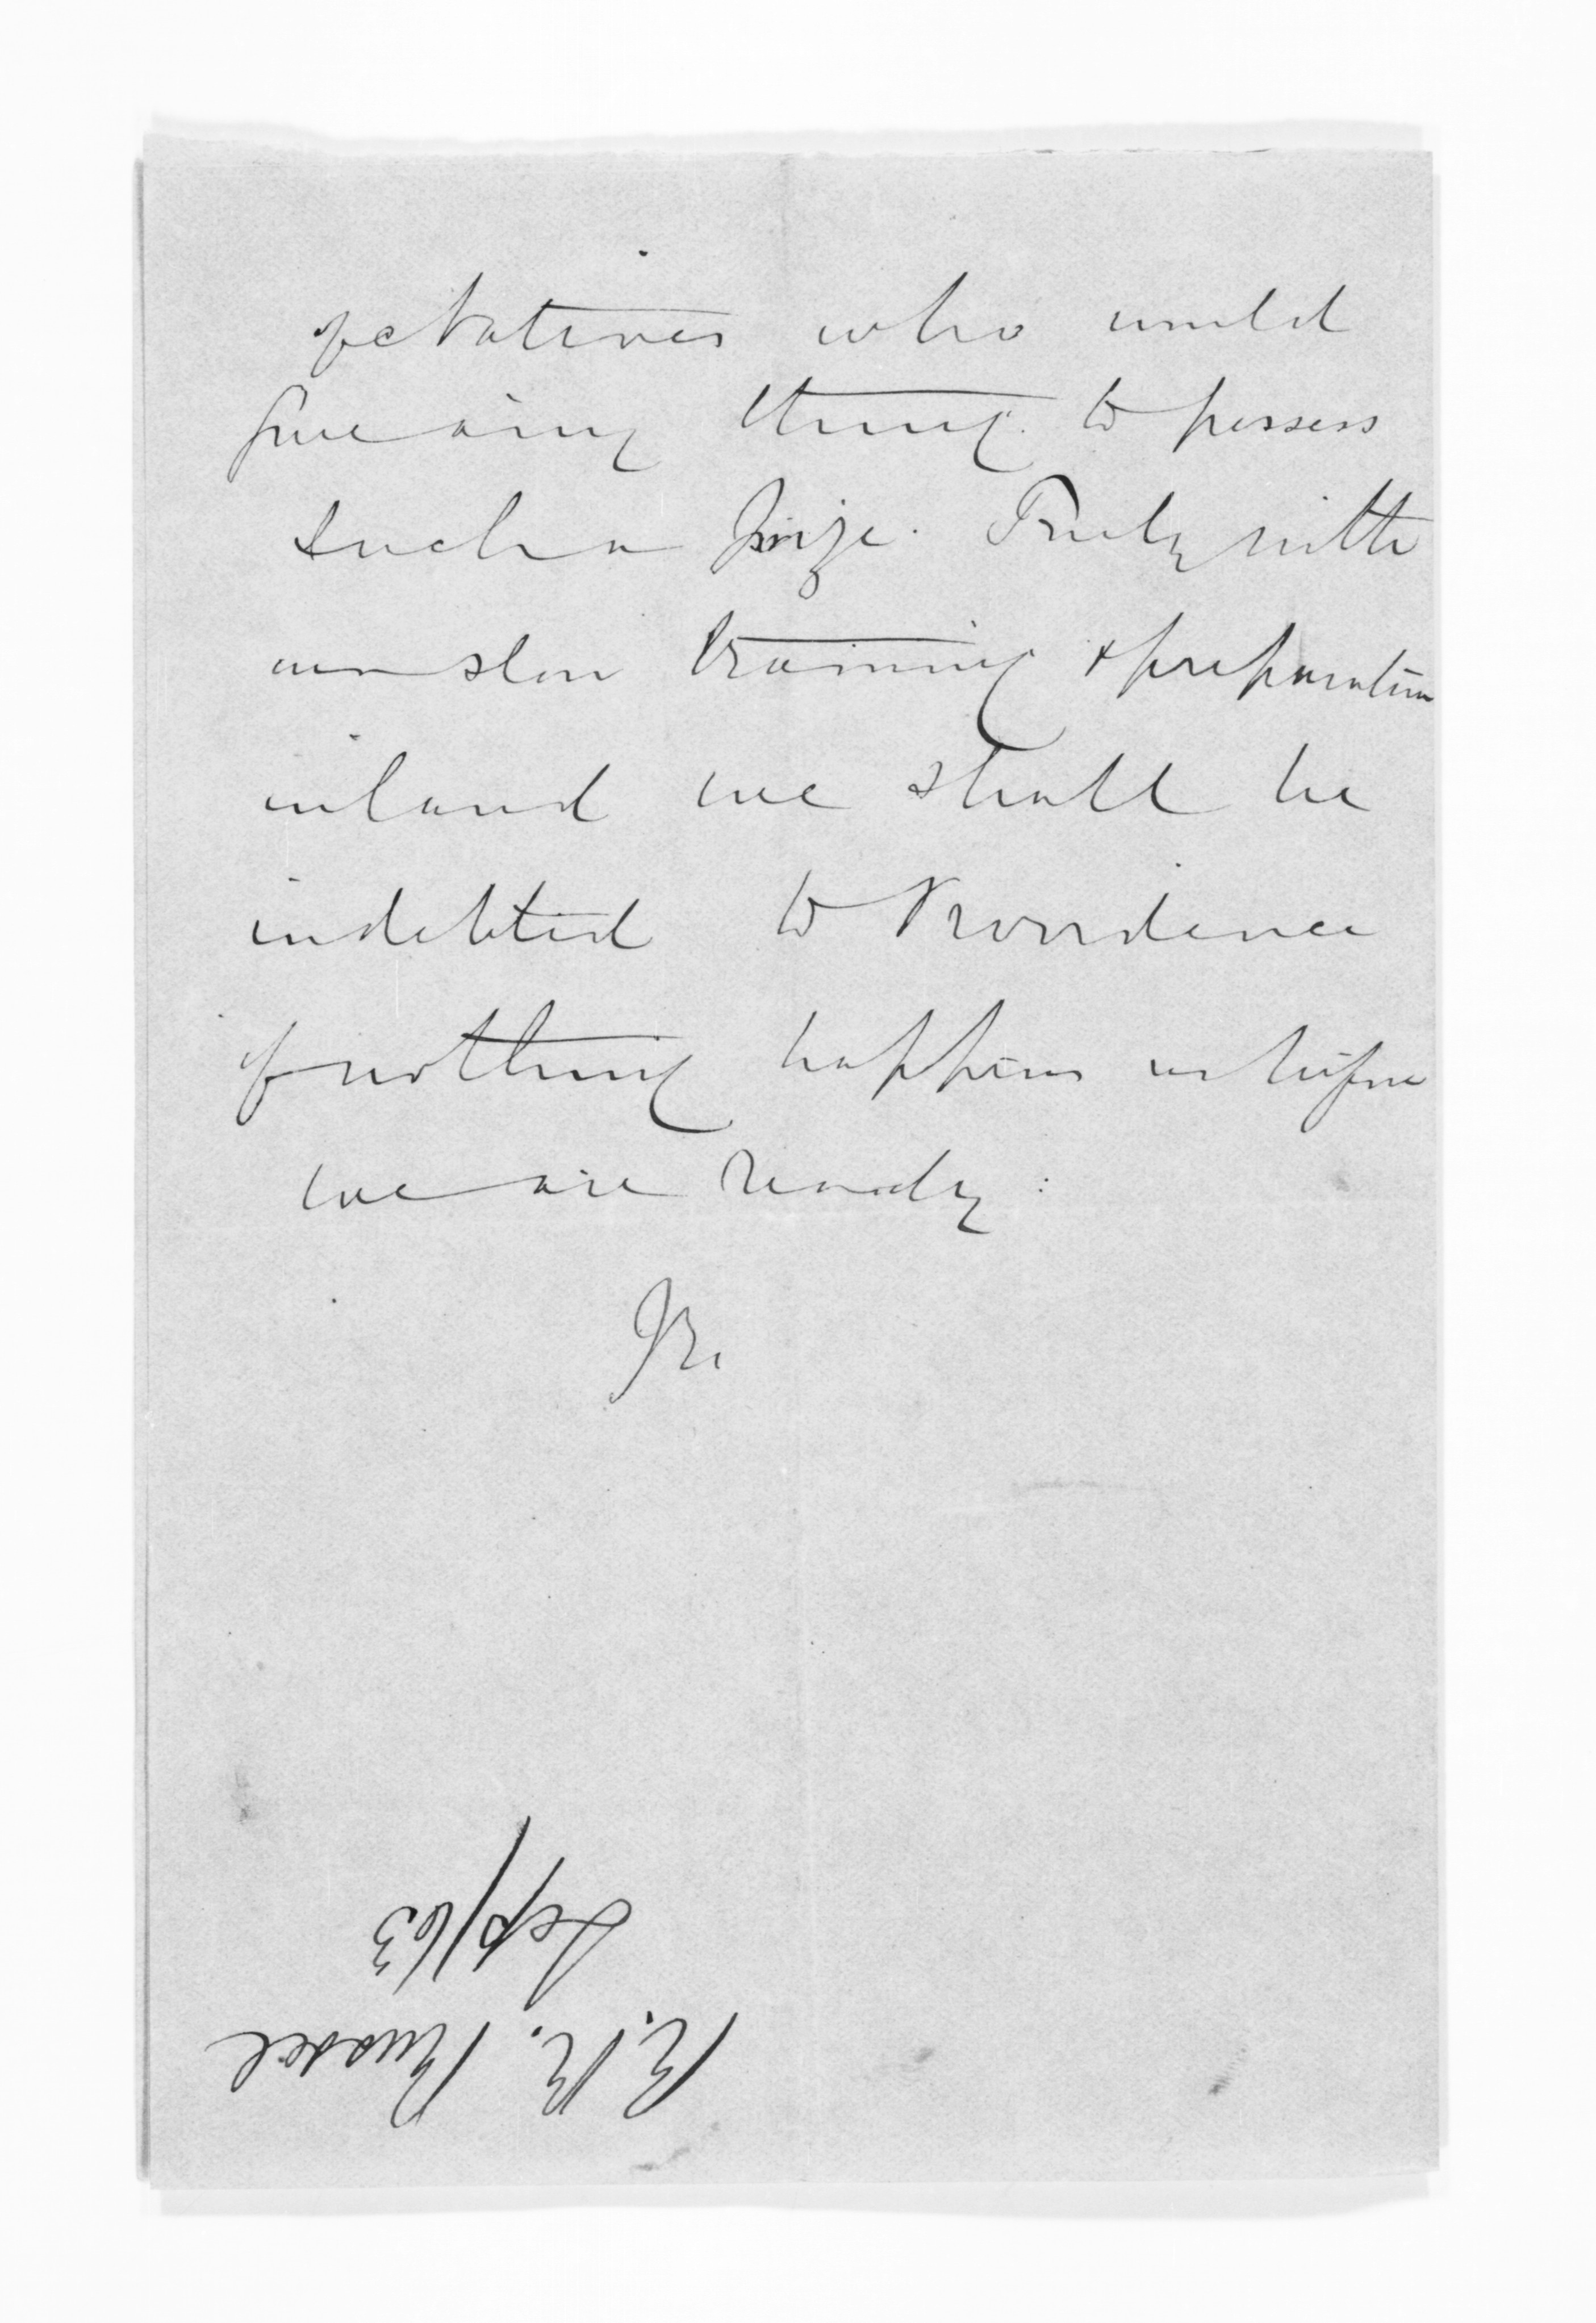 of Natives who would
give any thing to possess
such a prize. Truly with
our slow training & preparation
inland we shall be
indebted to Providence
if nothing happens us before
we are ready:
R. R. Russel
Sep/63